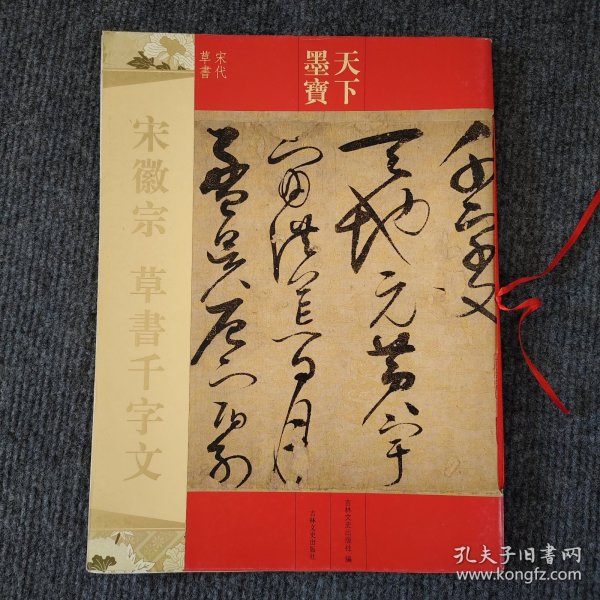 天下
墨寶
宋代
草書
宋徽宗 草書千字文
千字文
天地元黃宇
宙洪荒日月
盈昃辰宿列
吉林文史出版社 编
吉林文史出版社
孔夫子旧书网
www.kongfz.com